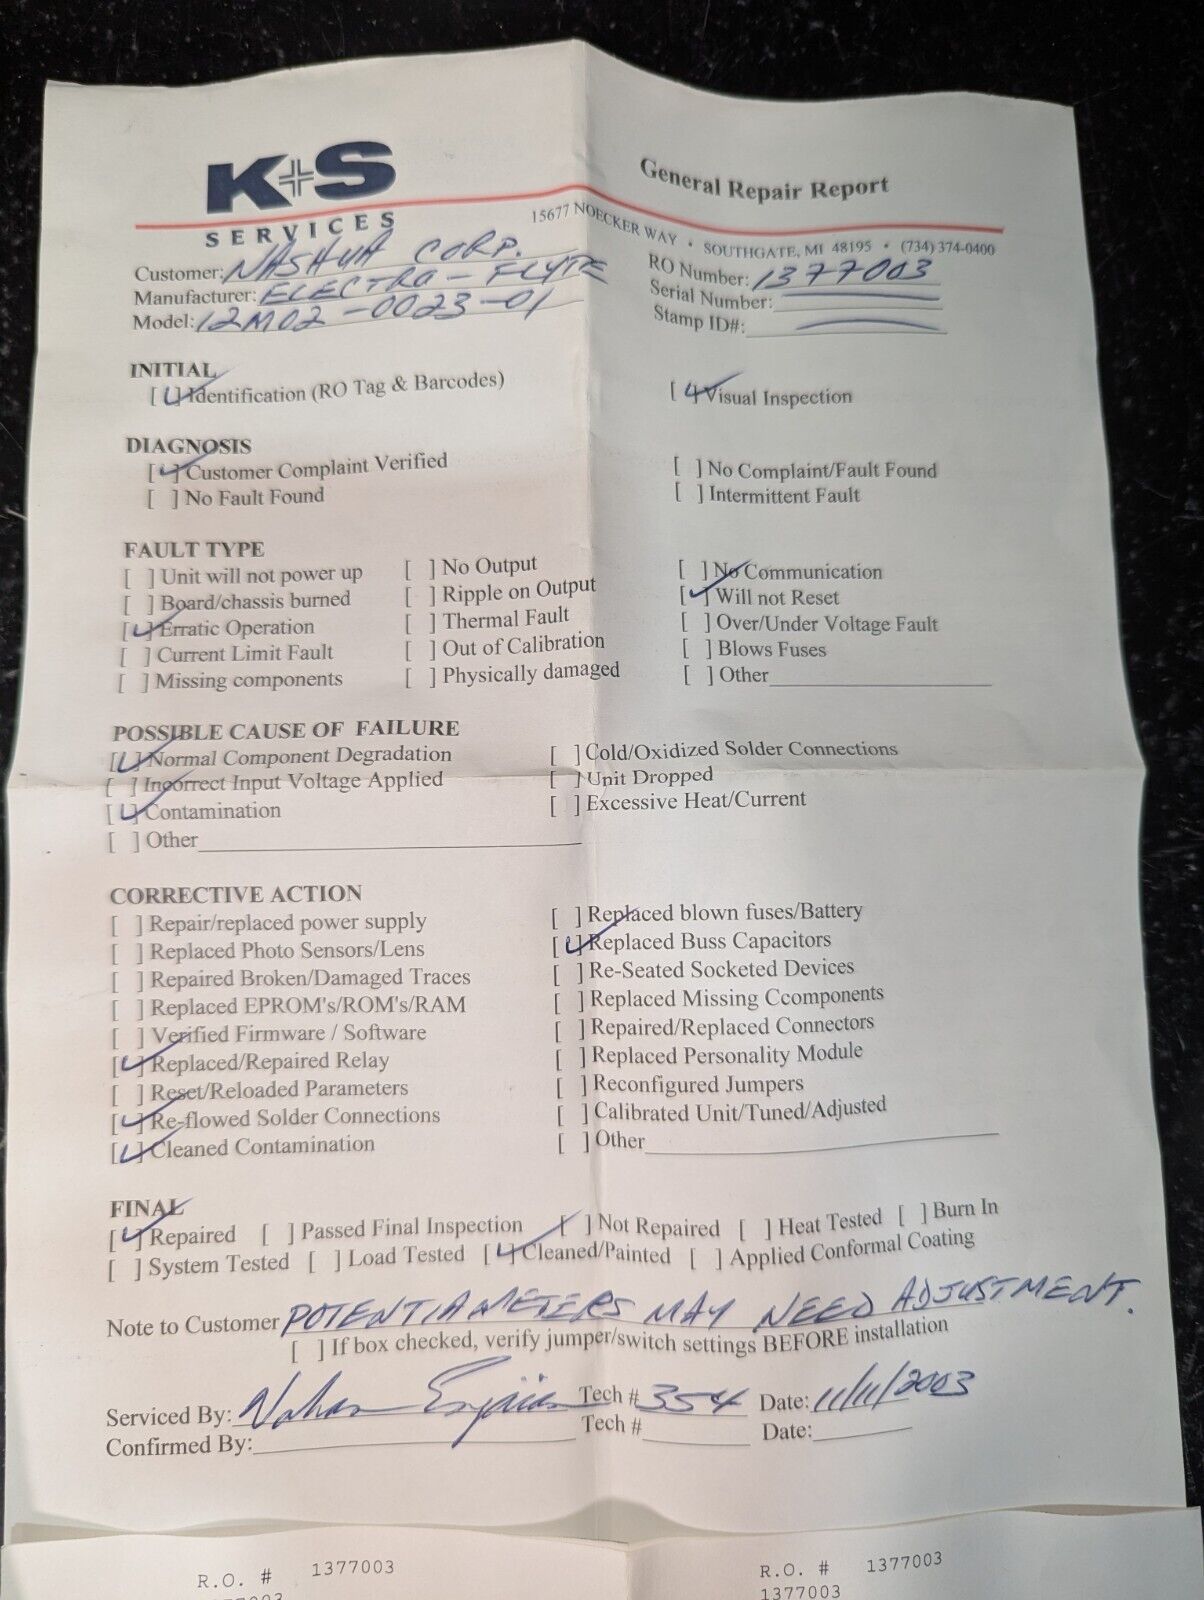 K+S
SERVICES
General Repair Report
15677 NOECKER WAY • SOUTHGATE, MI 48195 • (734) 374-0400
Customer: NASHUA CORP.
Manufacturer: ELECTRO-FLYTE
Model: 12M02-0023-01
RO Number: 1377003
Serial Number:
Stamp ID#:
INITIAL
[✓] Identification (RO Tag & Barcodes) [✓] Visual Inspection
DIAGNOSIS
[✓] Customer Complaint Verified [ ] No Complaint/Fault Found
[ ] No Fault Found [ ] Intermittent Fault
FAULT TYPE
[ ] Unit will not power up [ ] No Output [ ] No Communication
[ ] Board/chassis burned [ ] Ripple on Output [✓] Will not Reset
[✓] Erratic Operation [ ] Thermal Fault [ ] Over/Under Voltage Fault
[ ] Current Limit Fault [ ] Out of Calibration [ ] Blows Fuses
[ ] Missing components [ ] Physically damaged [ ] Other
POSSIBLE CAUSE OF FAILURE
[✓] Normal Component Degradation [ ] Cold/Oxidized Solder Connections
[ ] Incorrect Input Voltage Applied [ ] Unit Dropped
[✓] Contamination [ ] Excessive Heat/Current
[ ] Other
CORRECTIVE ACTION
[ ] Repair/replaced power supply [ ] Replaced blown fuses/Battery
[ ] Replaced Photo Sensors/Lens [✓] Replaced Buss Capacitors
[ ] Repaired Broken/Damaged Traces [ ] Re-Seated Socketed Devices
[ ] Replaced EPROM's/ROM's/RAM [ ] Replaced Missing Ccomponents
[ ] Verified Firmware / Software [ ] Repaired/Replaced Connectors
[✓] Replaced/Repaired Relay [ ] Replaced Personality Module
[ ] Reset/Reloaded Parameters [ ] Reconfigured Jumpers
[✓] Re-flowed Solder Connections [ ] Calibrated Unit/Tuned/Adjusted
[✓] Cleaned Contamination [ ] Other
FINAL
[✓] Repaired [ ] Passed Final Inspection [ ] Not Repaired [ ] Heat Tested [ ] Burn In
[ ] System Tested [ ] Load Tested [✓] Cleaned/Painted [ ] Applied Conformal Coating
Note to Customer POTENTIAMETERS MAY NEED ADJUSTMENT.
[ ] If box checked, verify jumper/switch settings BEFORE installation
Serviced By: Tech # 354 Date: 11/11/2003
Confirmed By: Tech # Date:
R.O. # 1377003 R.O. # 1377003
1377003 1377003